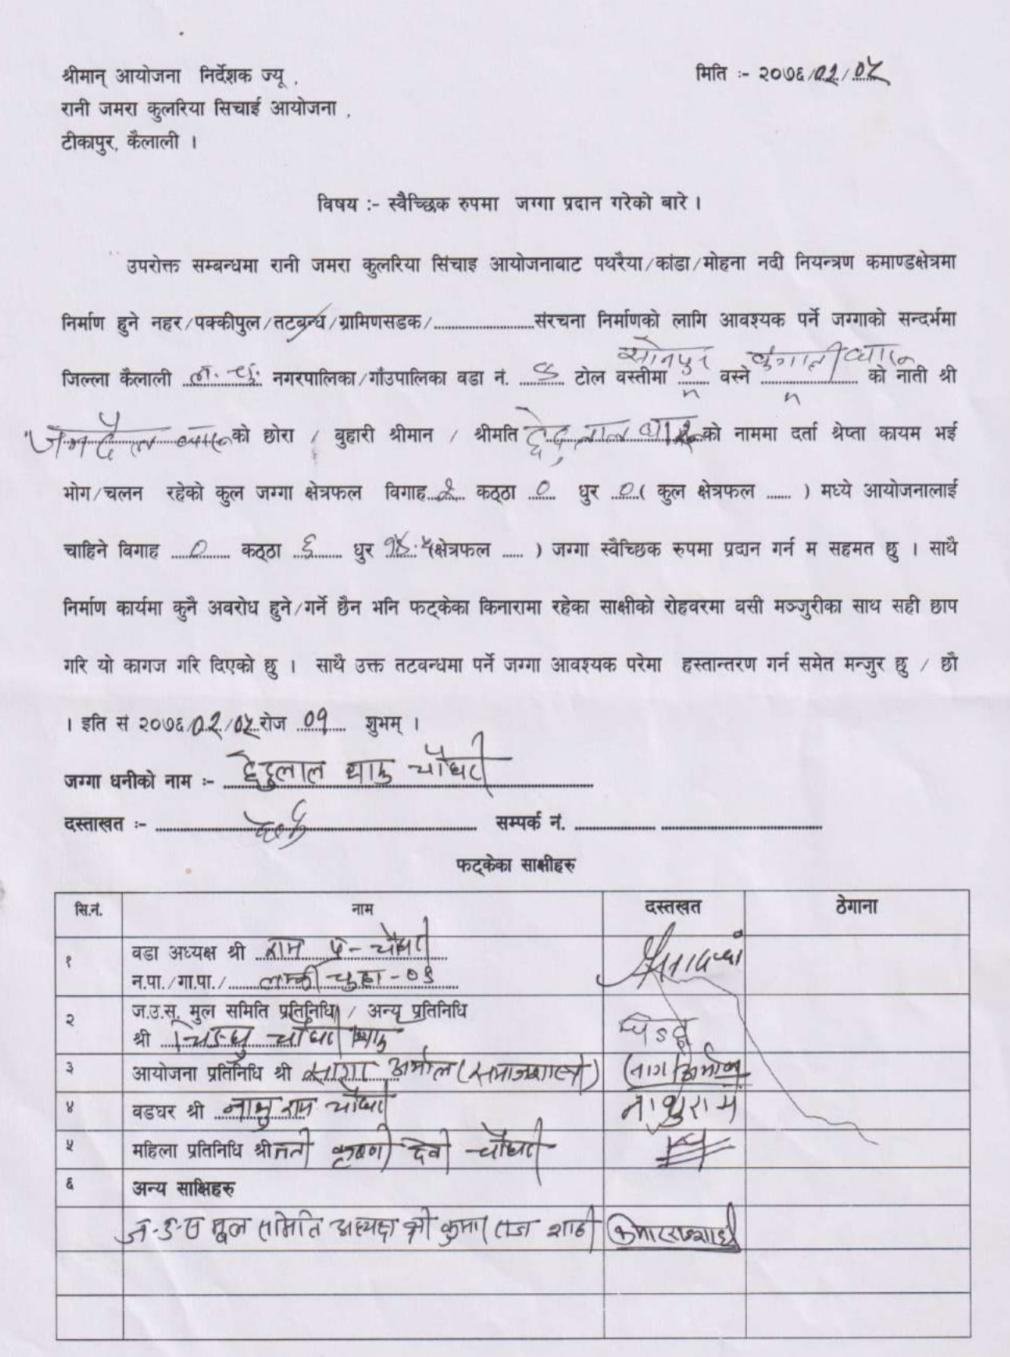 श्रीमान् आयोजना निर्देशक ज्यू ,
मिति :- २०७६/०२/०५
रानी जमरा कुलरिया सिचाई आयोजना ,
टीकापुर, कैलाली ।
विषय :- स्वैच्छिक रुपमा जग्गा प्रदान गरेको बारे ।
उपरोक्त सम्बन्धमा रानी जमरा कुलरिया सिंचाइ आयोजनाबाट पथरैया/कांडा/मोहना नदी नियन्त्रण कमाण्डक्षेत्रमा
निर्माण हुने नहर/पक्कीपुल/तटबन्ध/ग्रामिणसडक/....................संरचना निर्माणको लागि आवश्यक पर्ने जग्गाको सन्दर्भमा
जिल्ला कैलाली ल. चु. नगरपालिका/गाँउपालिका वडा नं. टोल वस्तीमा सोनपुर वस्ने को नाती श्री
को छोरा / बुहारी श्रीमान / श्रीमति को नाममा दर्ता श्रेप्ता कायम भई
भोग/चलन रहेको कुल जग्गा क्षेत्रफल विगाह २ कठ्ठा ० धुर ० ( कुल क्षेत्रफल ...... ) मध्ये आयोजनालाई
चाहिने विगाह ० कठ्ठा ६ धुर (क्षेत्रफल ..... ) जग्गा स्वैच्छिक रुपमा प्रदान गर्न म सहमत छु । साथै
निर्माण कार्यमा कुनै अवरोध हुने/गर्ने छैन भनि फट्केका किनारामा रहेका साक्षीको रोहवरमा वसी मञ्जुरीका साथ सही छाप
गरि यो कागज गरि दिएको छु । साथै उक्त तटवन्धमा पर्ने जग्गा आवश्यक परेमा हस्तान्तरण गर्न समेत मन्जुर छु / छौ
। इति सं २०७६/०२/०५ रोज ०१ शुभम् ।
जग्गा धनीको नाम :- छेदुलाल थारु चौधरी
दस्ताखत :- सम्पर्क नं.
फट्केका साक्षीहरु
सि.नं. नाम दस्तखत ठेगाना
१ वडा अध्यक्ष श्री राम प्र- चौधरी
न.पा./गा.पा./ लम्की चुहा - ०९
२ ज.उ.स. मुल समिति प्रतिनिधि / अन्य प्रतिनिधि
श्री चौधरी थारु
३ आयोजना प्रतिनिधि श्री (समाजशास्त्री)
४ वडघर श्री राम चौधरी नाथुराम
५ महिला प्रतिनिधि श्रीमती देवी चौधरी
६ अन्य साक्षिहरु
ज-उ-स मूल समिति अध्यक्ष श्री कुमार राज शाही कुमारराज शाही